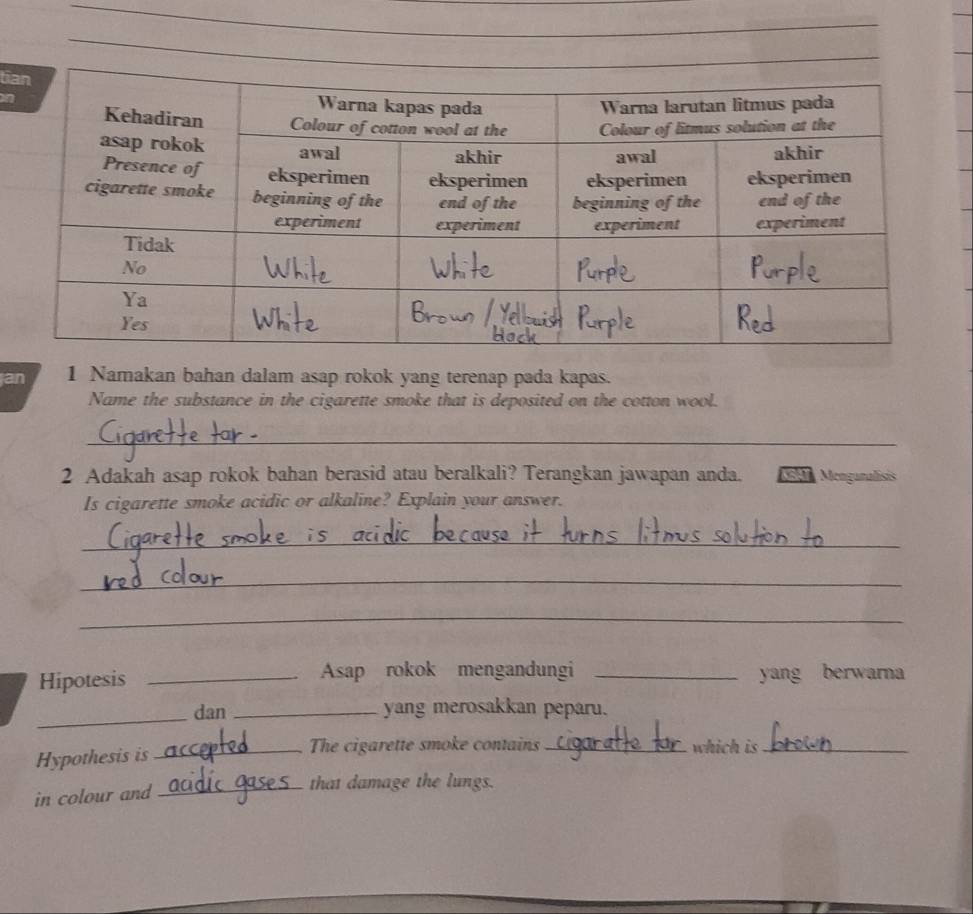 Kehadiran asap rokok
Presence of cigarette smoke
Warna kapas pada
Colour of cotton wool at the
Warna larutan litmus pada
Colour of litmus solution at the
awal eksperimen
beginning of the experiment
akhir eksperimen
end of the experiment
awal eksperimen
beginning of the experiment
akhir eksperimen
end of the experiment
Tidak
No White White Purple Purple
Ya
Yes White Brown / Yellowish black Purple Red
1 Namakan bahan dalam asap rokok yang terenap pada kapas.
Name the substance in the cigarette smoke that is deposited on the cotton wool.
Cigarette tar.
2 Adakah asap rokok bahan berasid atau beralkali? Terangkan jawapan anda. Menganalisis
Is cigarette smoke acidic or alkaline? Explain your answer.
Cigarette smoke is acidic because it turns litmus solution to
red colour
Hipotesis ____ Asap rokok mengandungi ____ yang berwarna
____ dan ____ yang merosakkan peparu.
Hypothesis is accepted. The cigarette smoke contains cigaratte tar which is brown
in colour and acidic gases that damage the lungs.